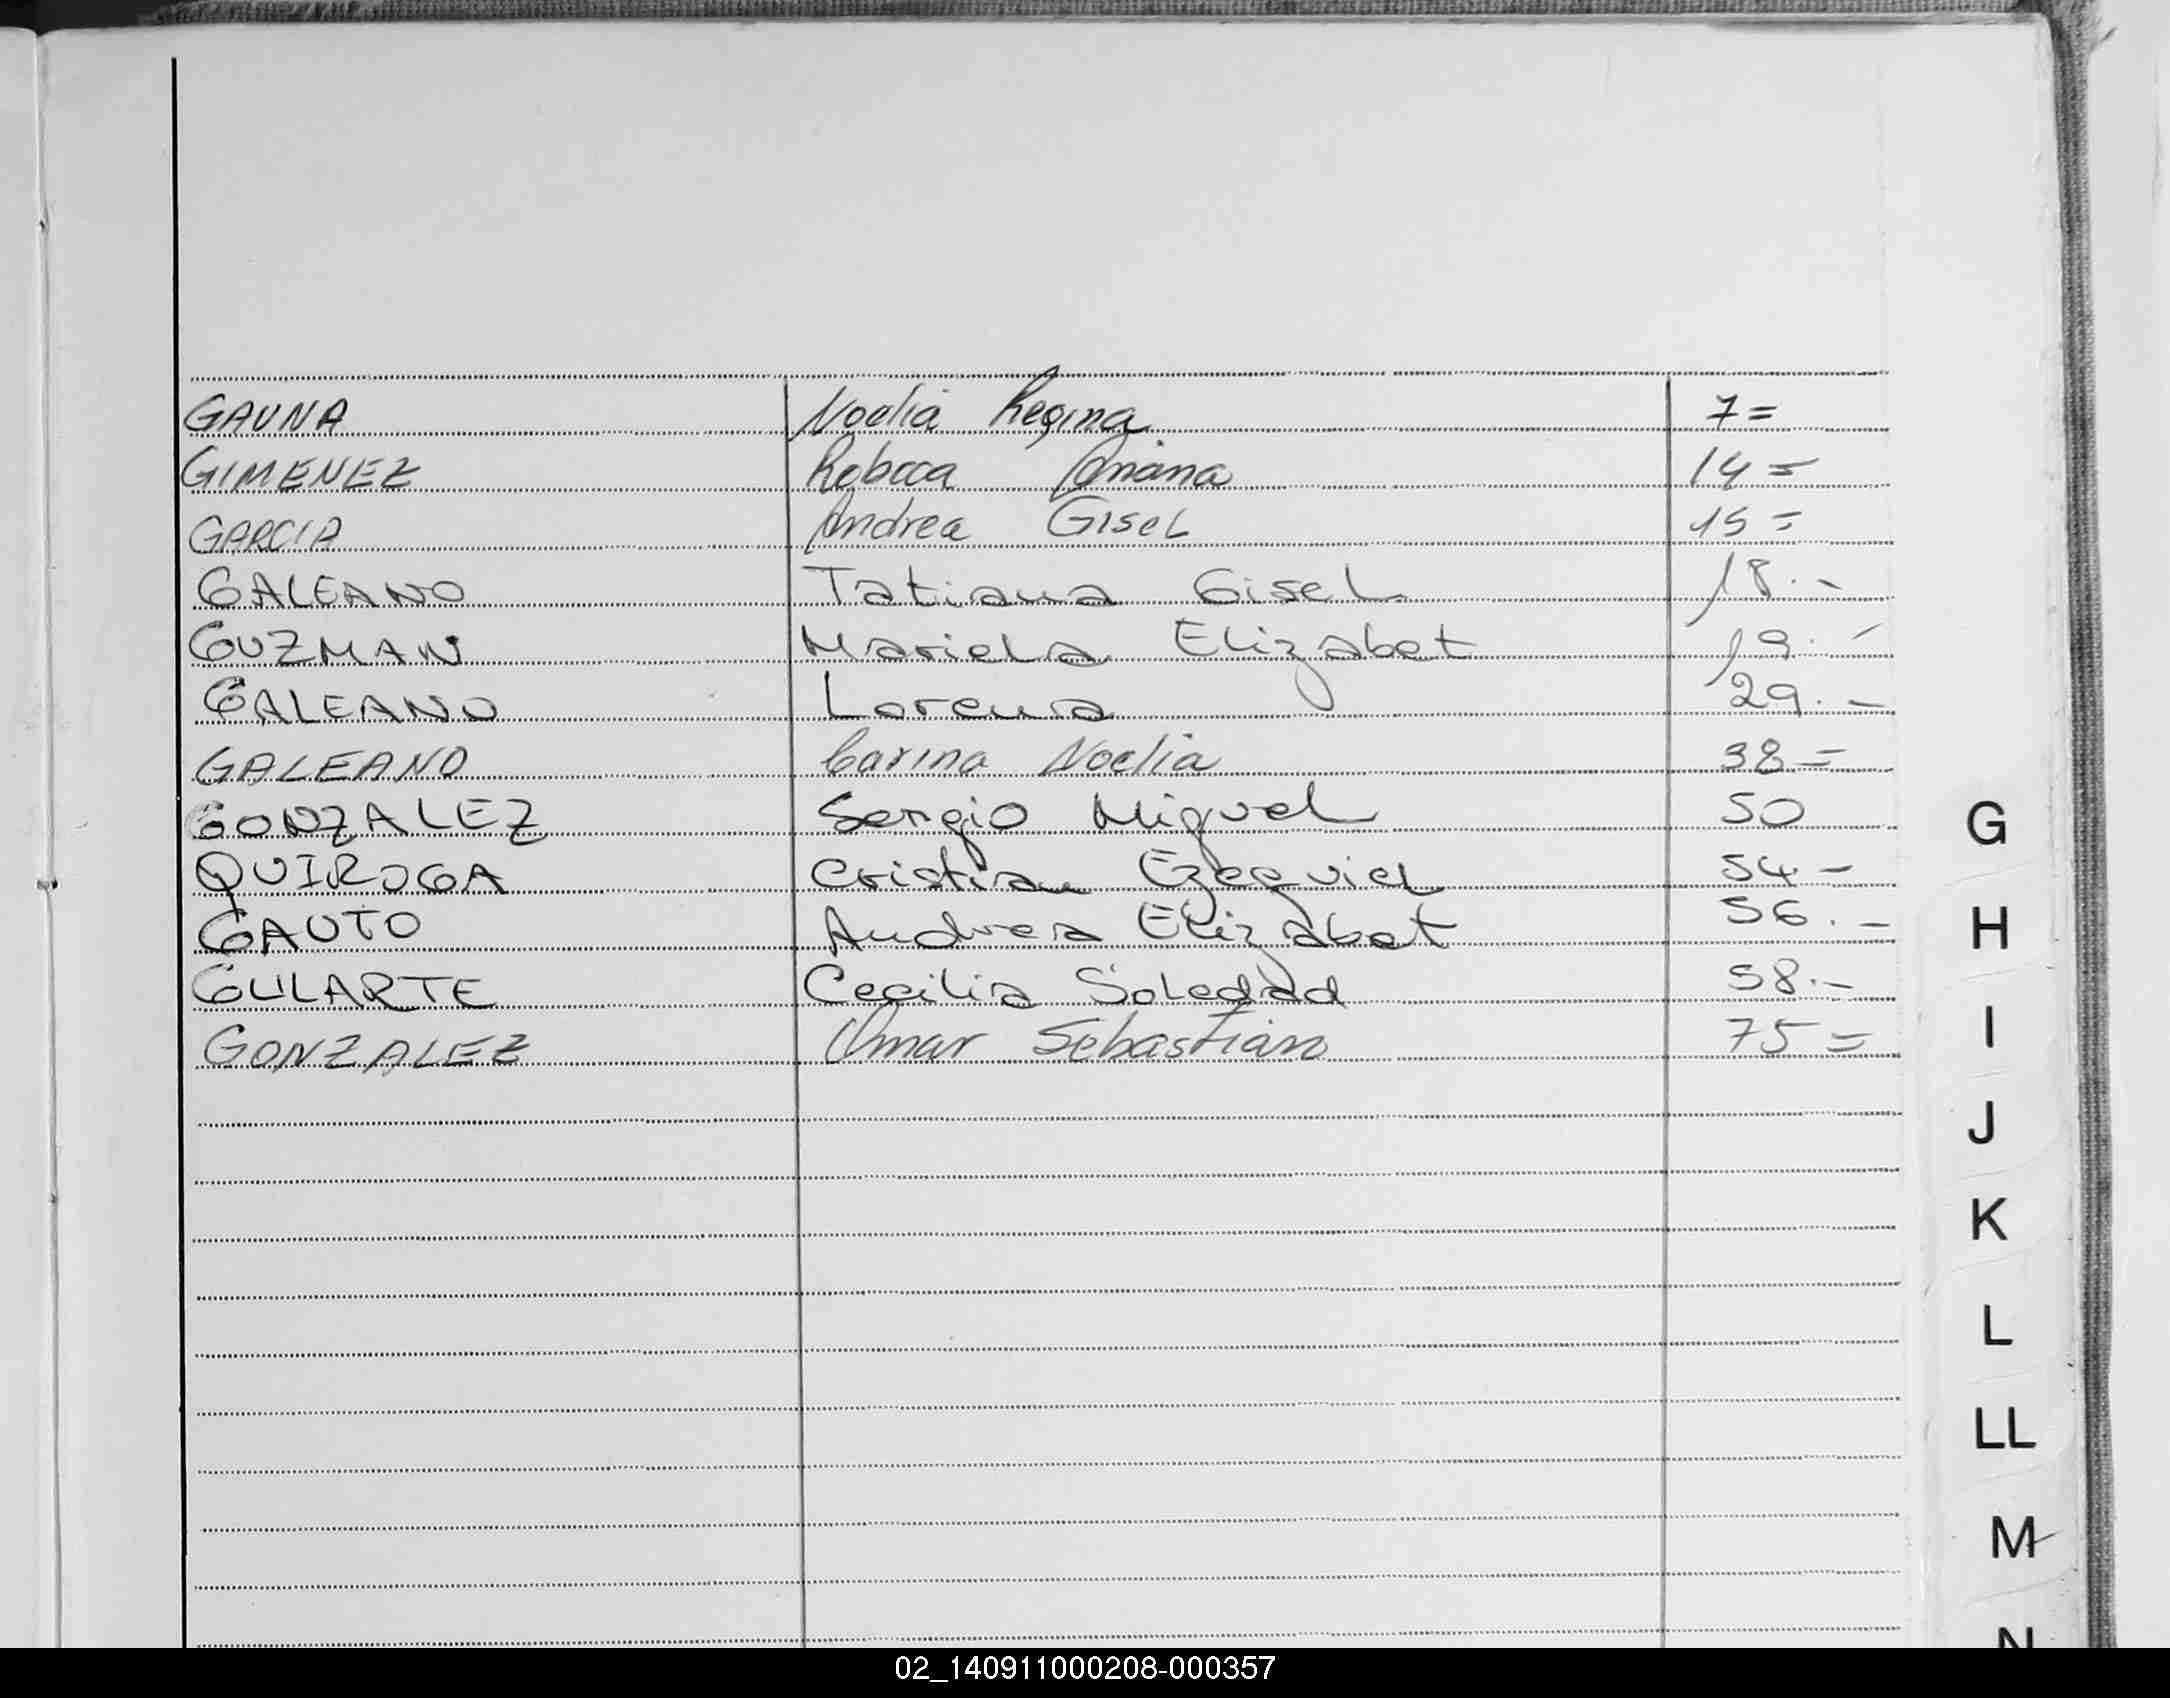 GAUNA Noelia Regina 7=
GIMENEZ Rebeca 14=
GARCIA Andrea Gisel 15=
GALEANO Tatiana Gisel 18.-
GUZMAN Mariela Elizabet 19.-
GALEANO Lorena 29.-
GALEANO Carina Noelia 38=
GONZALEZ Sergio Miguel 50
QUIROGA Cristian Ezequiel 54-
GAUTO Andrea Elizabet 56.-
GULARTE Cecilia Soledad 58.-
GONZALEZ Omar Sebastian 75=
G
H
I
J
K
L
LL
M
N
02_140911000208-000357